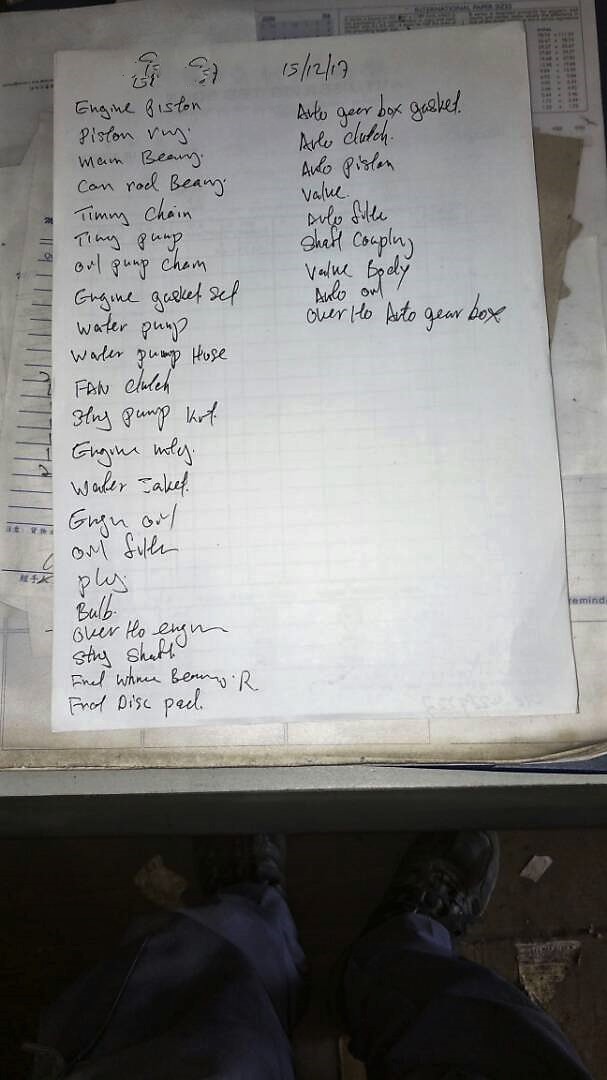 INTERNATIONAL PAPER SIZES
15/12/17
Engine piston
piston ring.
main Bearing.
Con rod Bearing.
Timing chain
Timing pump
oil pump chain
Engine gasket set
water pump
water pump Hose
FAN clutch
Strg pump kit.
Engine mtg.
Water Jaket.
Engn oil
oil filter
plug.
Bulb.
over Ho engin
Strg shaft.
Bearing. R
Disc pad.
Auto gear box gasket.
Auto clutch.
Auto piston
Value.
Auto filter
Shaft Coupling
Value Body
Auto oil
over Ho Auto gear box
remind